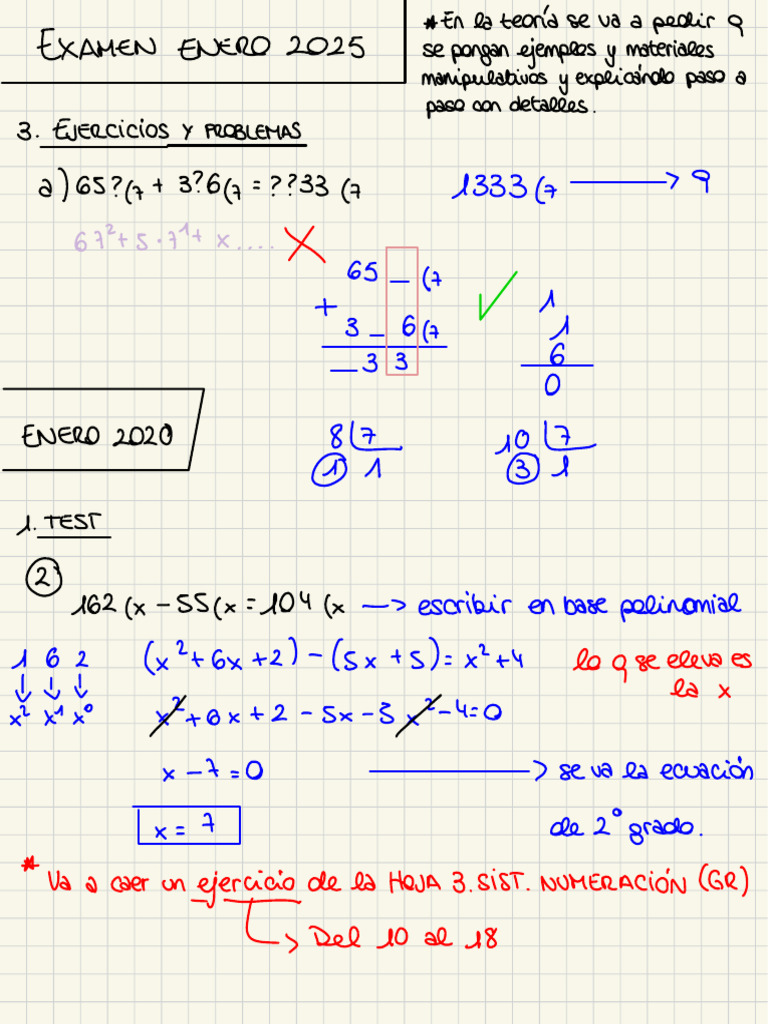 EXAMEN ENERO 2025
* En la teoría se va a pedir q
se pongan ejemplos y materiales
manipulativos y explicándo paso a
paso con detalles.
3. EJERCICIOS Y PROBLEMAS
a) 65?(7 + 3?6(7 = ??33 (7
1333 (7 → 9
67²+5·7¹+ x....
65 _ (7
+
3 _ 6(7
_ 3 3
1
1
6
0
ENERO 2020
8 7
1 1
10 7
3 1
1. TEST
2)
162 (x - 55(x = 104 (x → escribir en base polinomial
1 6 2
x² x¹ x⁰
(x²+6x+2) - (5x+5) = x²+4
lo q se eleva es
la x
x²+6x+2 - 5x-5 x²-4=0
x - 7 = 0 → se va la ecuación
de 2º grado.
x = 7
* Va a caer un ejercicio de la HOJA 3. SIST. NUMERACIÓN (GR)
→ Del 10 al 18